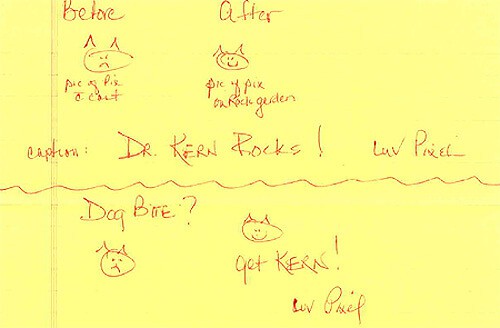 Before After
pic of Pix pic of pix
c̄ cast on Rock garden
caption: DR. KERN ROCKS! LUV PIXEL
DOG BITE?
get KERN!
LUV Pixel